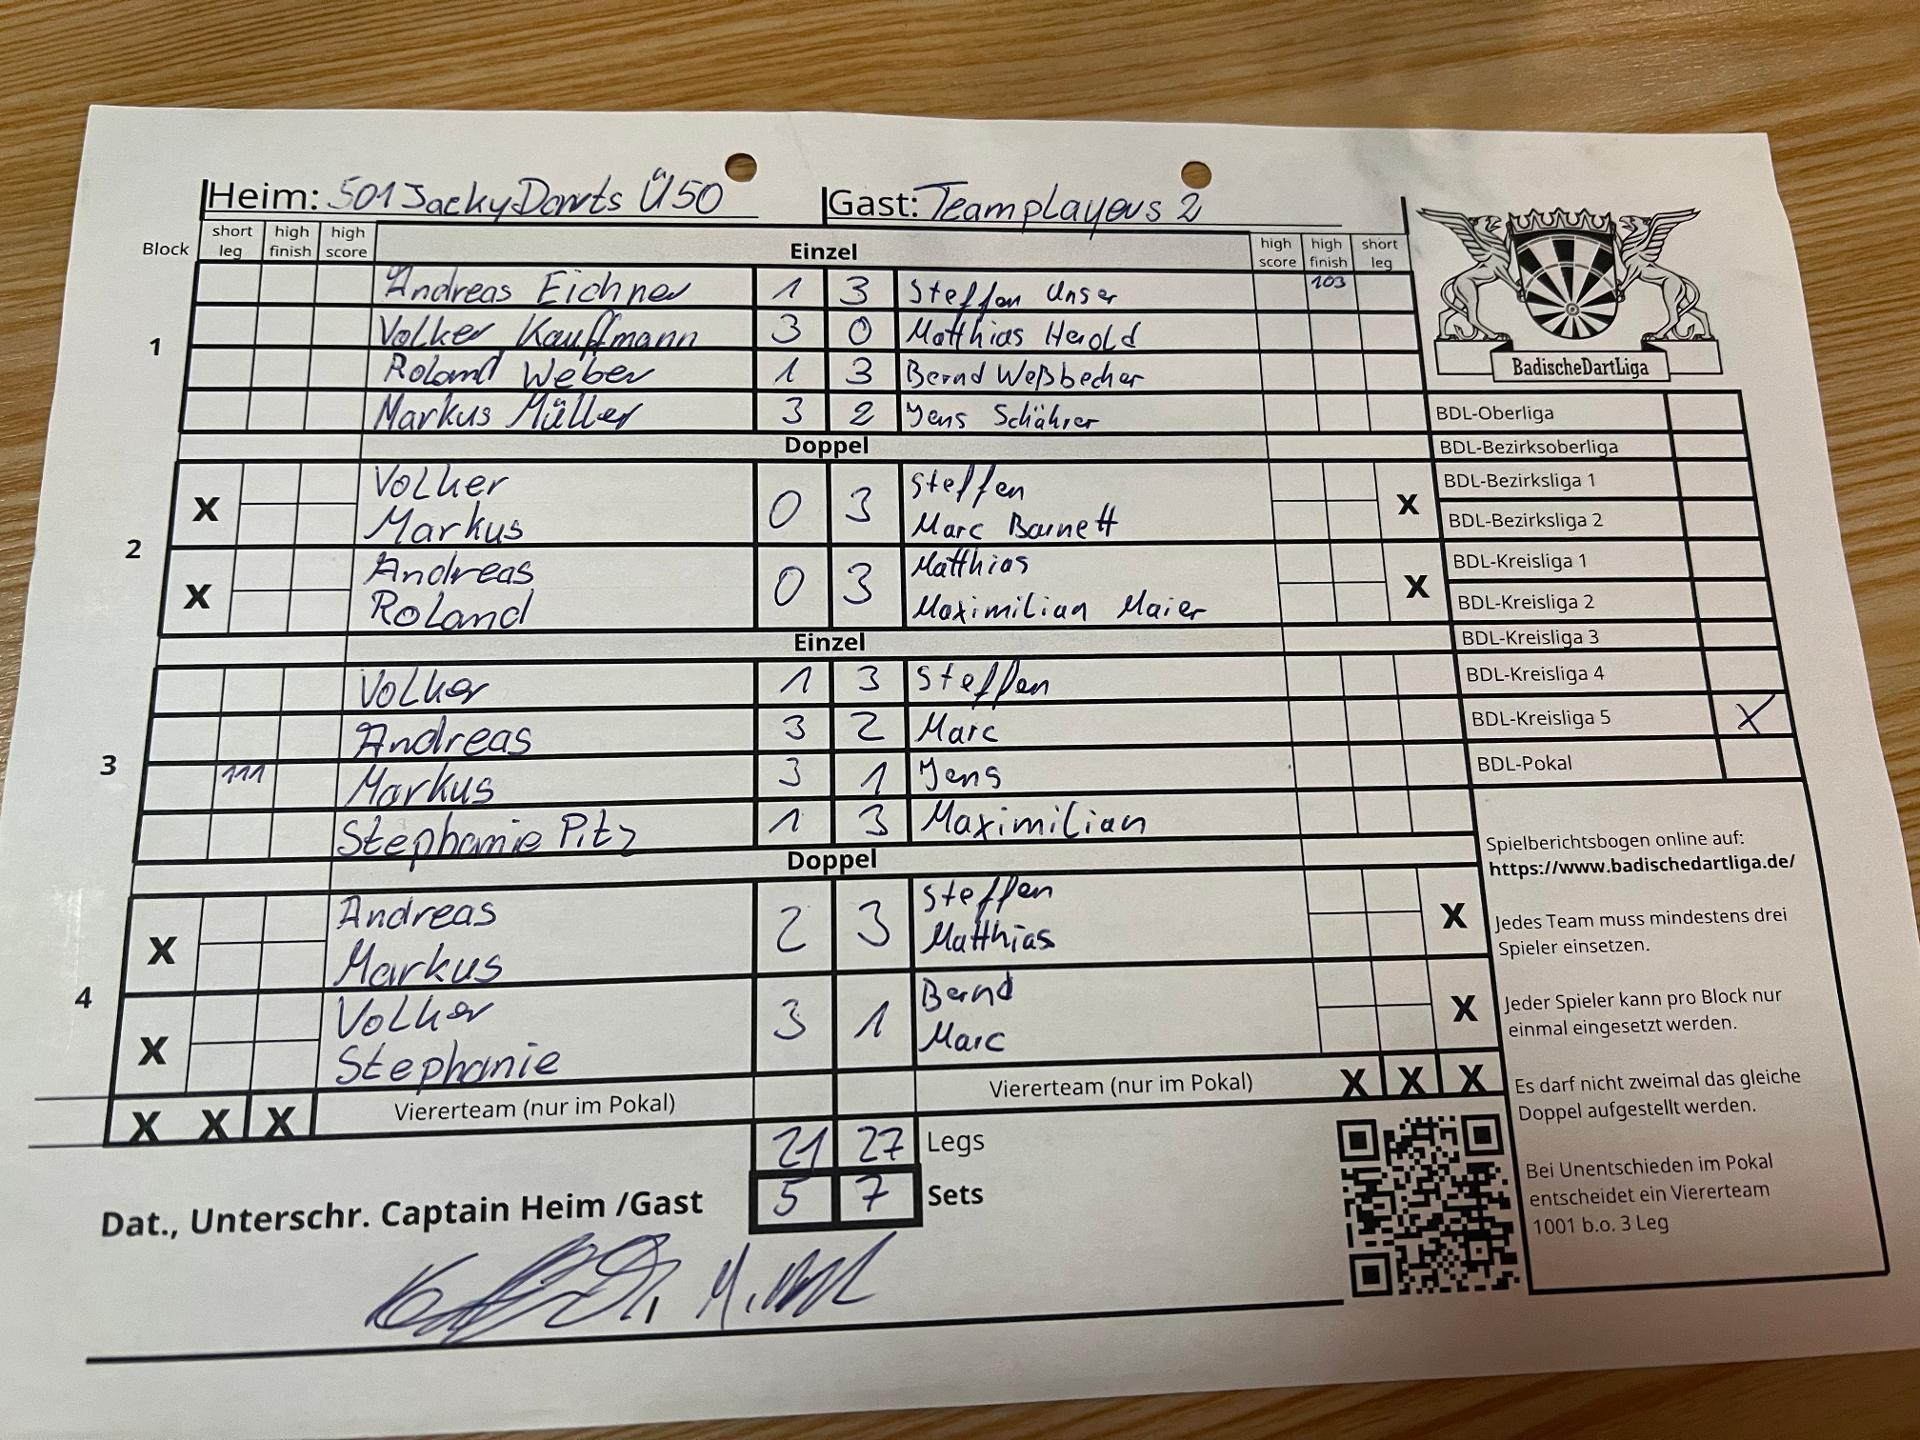 Heim: 501 JackyDarts Ü50 Gast: Teamplayers 2
Block short leg high finish high score Einzel high score high finish short leg
Andreas Eichner 1 3 Steffen Unser 103
1 Volker Kauffmann 3 0 Matthias Herold
Roland Weber 1 3 Bernd Weßbecher
Markus Müller 3 2 Jens Schährer
Doppel
2
X Volker Markus 0 3 Steffen Marc Barnett X
X Andreas Roland 0 3 Matthias Maximilian Maier X
Einzel
3
Volker 1 3 Steffen
Andreas 3 2 Marc
111 Markus 3 1 Jens
Stephanie Pitz 1 3 Maximilian
Doppel
4
X Andreas Markus 2 3 Steffen Matthias X
X Volker Stephanie 3 1 Bernd Marc X
X X X Viererteam (nur im Pokal) Viererteam (nur im Pokal) X X X
21 27 Legs
5 7 Sets
Dat., Unterschr. Captain Heim /Gast
BadischeDartLiga
BDL-Oberliga
BDL-Bezirksoberliga
BDL-Bezirksliga 1
BDL-Bezirksliga 2
BDL-Kreisliga 1
BDL-Kreisliga 2
BDL-Kreisliga 3
BDL-Kreisliga 4
BDL-Kreisliga 5 X
BDL-Pokal
Spielberichtsbogen online auf:
https://www.badischedartliga.de/
Jedes Team muss mindestens drei
Spieler einsetzen.
Jeder Spieler kann pro Block nur
einmal eingesetzt werden.
Es darf nicht zweimal das gleiche
Doppel aufgestellt werden.
Bei Unentschieden im Pokal
entscheidet ein Viererteam
1001 b.o. 3 Leg